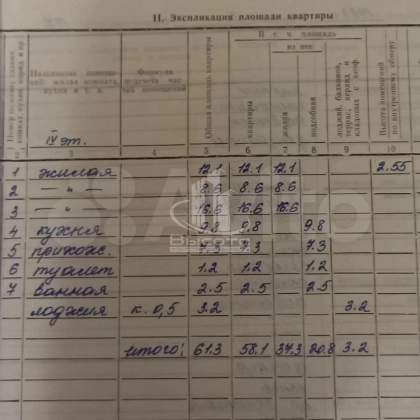 II. Экспликация площади квартиры
В т. ч. площадь
из нее
Общая площадь квартиры
квартиры
жилая
подсобная
лоджий, балконов, террас, веранд и кладовых с коэф.
Высота помещений по внутреннему обмеру
Формула подсчета час
IV эт.
3 4 5 6 7 8 9 10
1 жилая 12.1 12.1 12.1 2.55
2 — " — 8.6 8.6 8.6
3 — " — 16.6 16.6 16.6
4 кухня 9.8 9.8 9.8
5 прихож. 7.3 7.3 7.3
6 туалет 1.2 1.2 1.2
7 ванная 2.5 2.5 2.5
лоджия к. 0,5 3.2 3.2
итого: 61.3 58.1 37.3 20.8 3.2
Высота
Avito